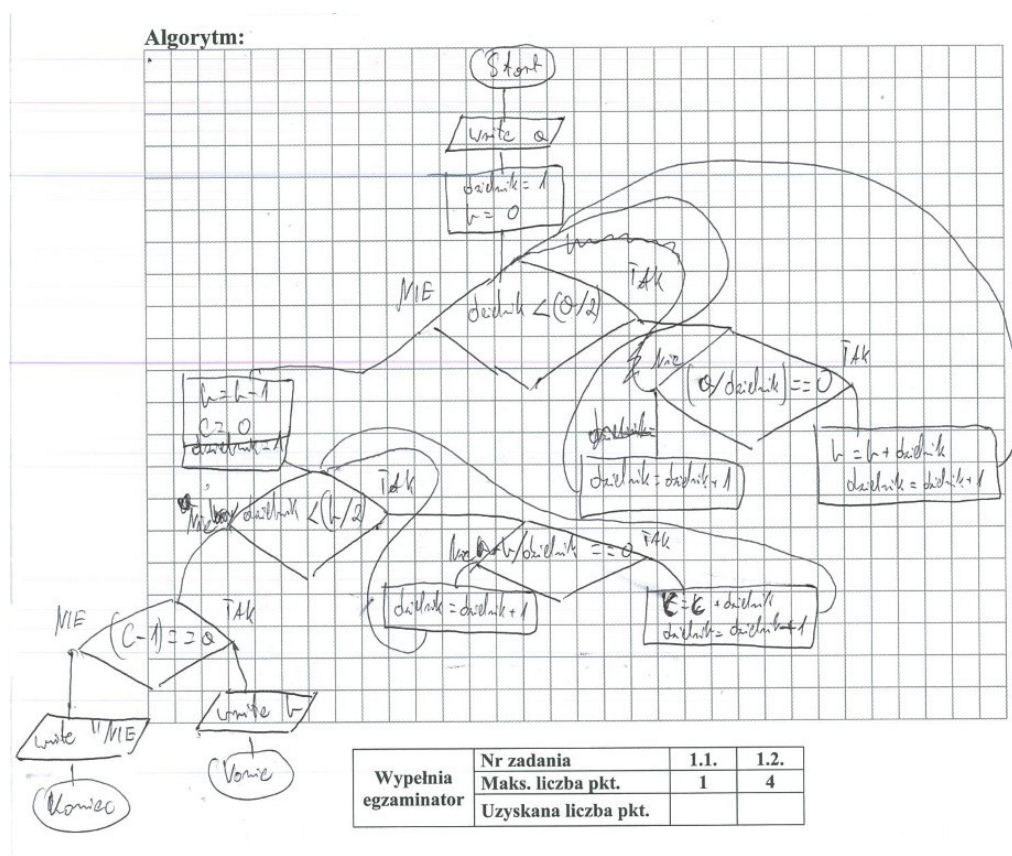 Algorytm:
Start
write a
dzielnik = 1
b = 0
NIE
dzielnik < (a/2)
TAK
Nie
(a/dzielnik) == 0
TAK
b = b-1
C = 0
dzielnik = 1
dzielnik = dzielnik + 1
b = b + dzielnik
dzielnik = dzielnik + 1
dzielnik < (b/2)
TAK
Nie
b/dzielnik == 0
TAK
dzielnik = dzielnik + 1
C = C + dzielnik
dzielnik = dzielnik + 1
NIE
(C-1) == a
TAK
write "NIE
write b
Koniec
Koniec
Wypełnia egzaminator
Nr zadania 1.1. 1.2.
Maks. liczba pkt. 1 4
Uzyskana liczba pkt.